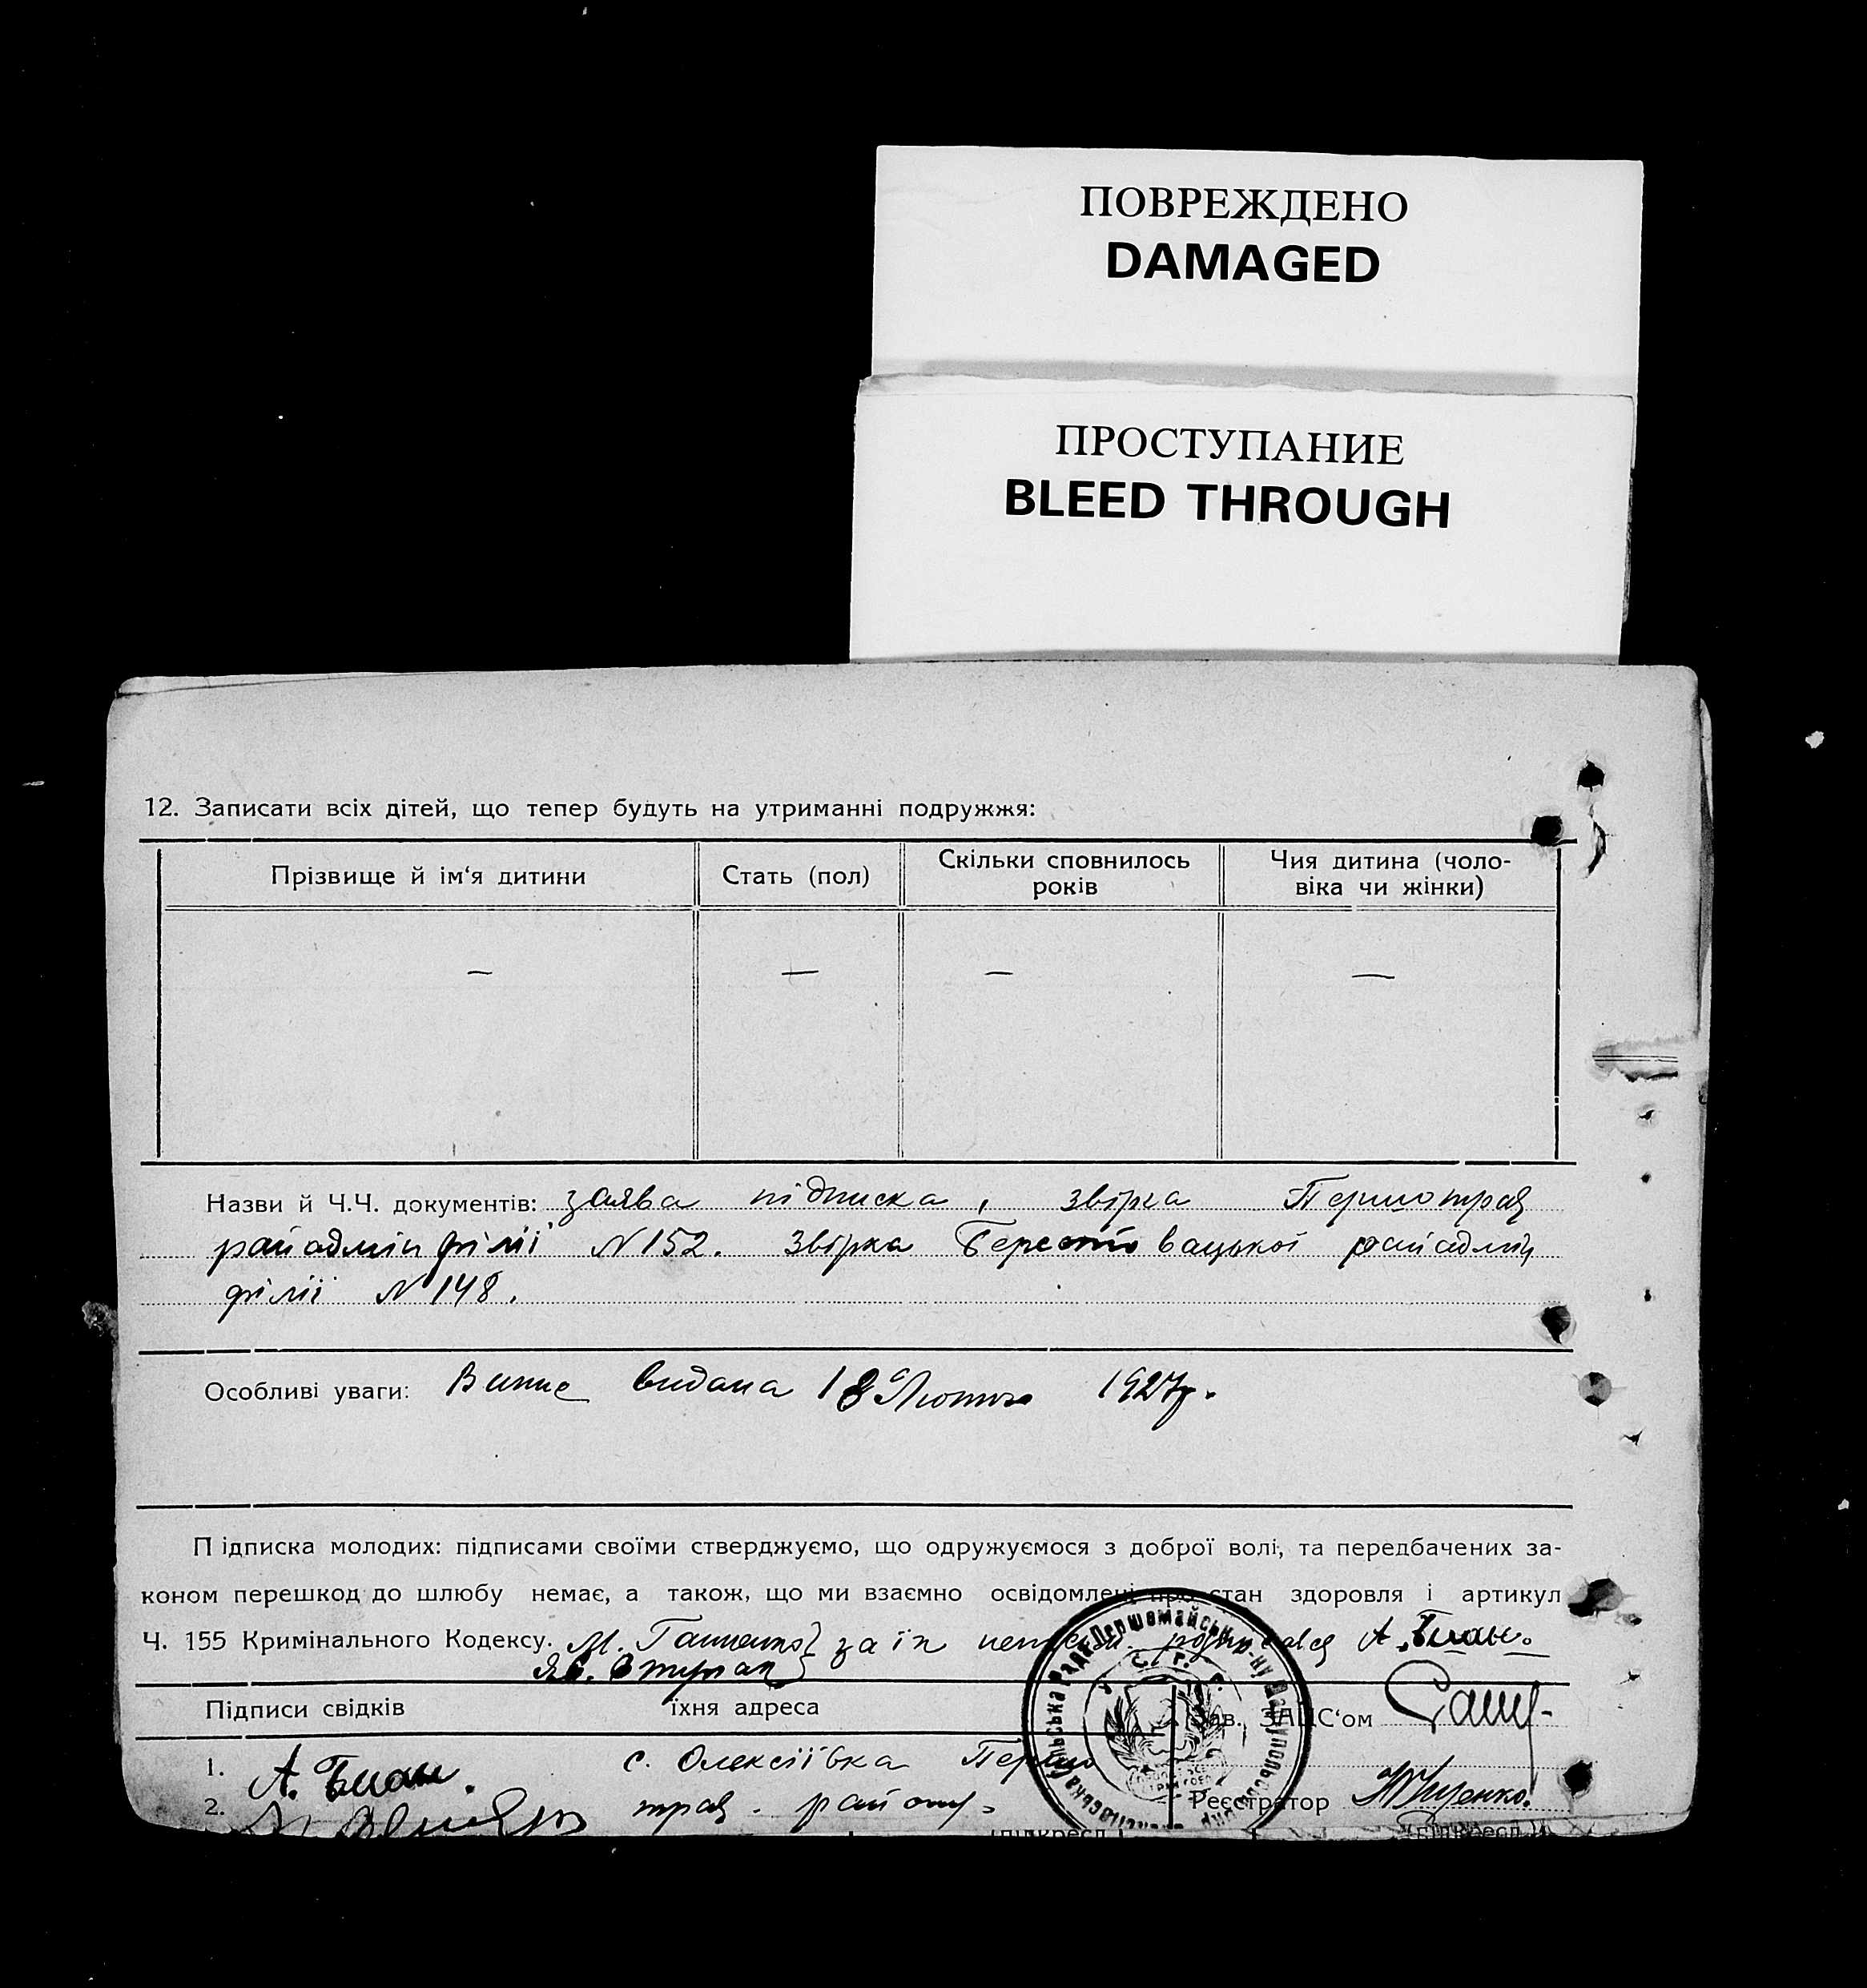 ПОВРЕЖДЕНО
DAMAGED
ПРОСТУПАНИЕ
BLEED THROUGH
12. Записати всіх дітей, що тепер будуть на утриманні подружжя:
Прізвище й ім‘я дитини
Стать (пол)
Скільки сповнилось
років
Чия дитина (чоло-
віка чи жінки)
— — — —
Назви й Ч.Ч. документів: заява підписка, звірка Першотрав
райадмінфілії N 152. Звірка Берестовацької райадмін
філії N 148.
Особливі уваги: видана 18 Лютого 1927р.
Підписка молодих: підписами своїми стверджуємо, що одружуємося з доброї волі, та передбачених за-
коном перешкод до шлюбу немає, а також, що ми взаємно освідомлені про стан здоровля і артикул
Ч. 155 Кримінального Кодексу. М. за їх непись. розписався А. Білан.
Підписи свідків
їхня адреса
Зав. ЗАЦС‘ом
1. А. Білан. с. Олексіївка Першо
2. трав. району
Реєстратор